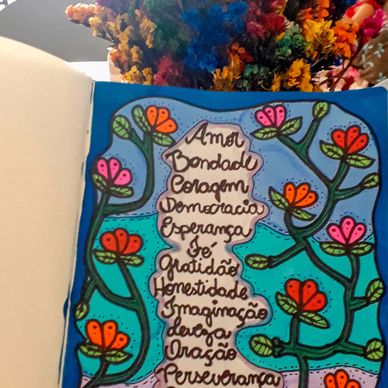 Amor
Bondade
Coragem
Democracia
Esperança
Fé
Gratidão
Honestidade
Imaginação
Leveza
Oração
Perseverança